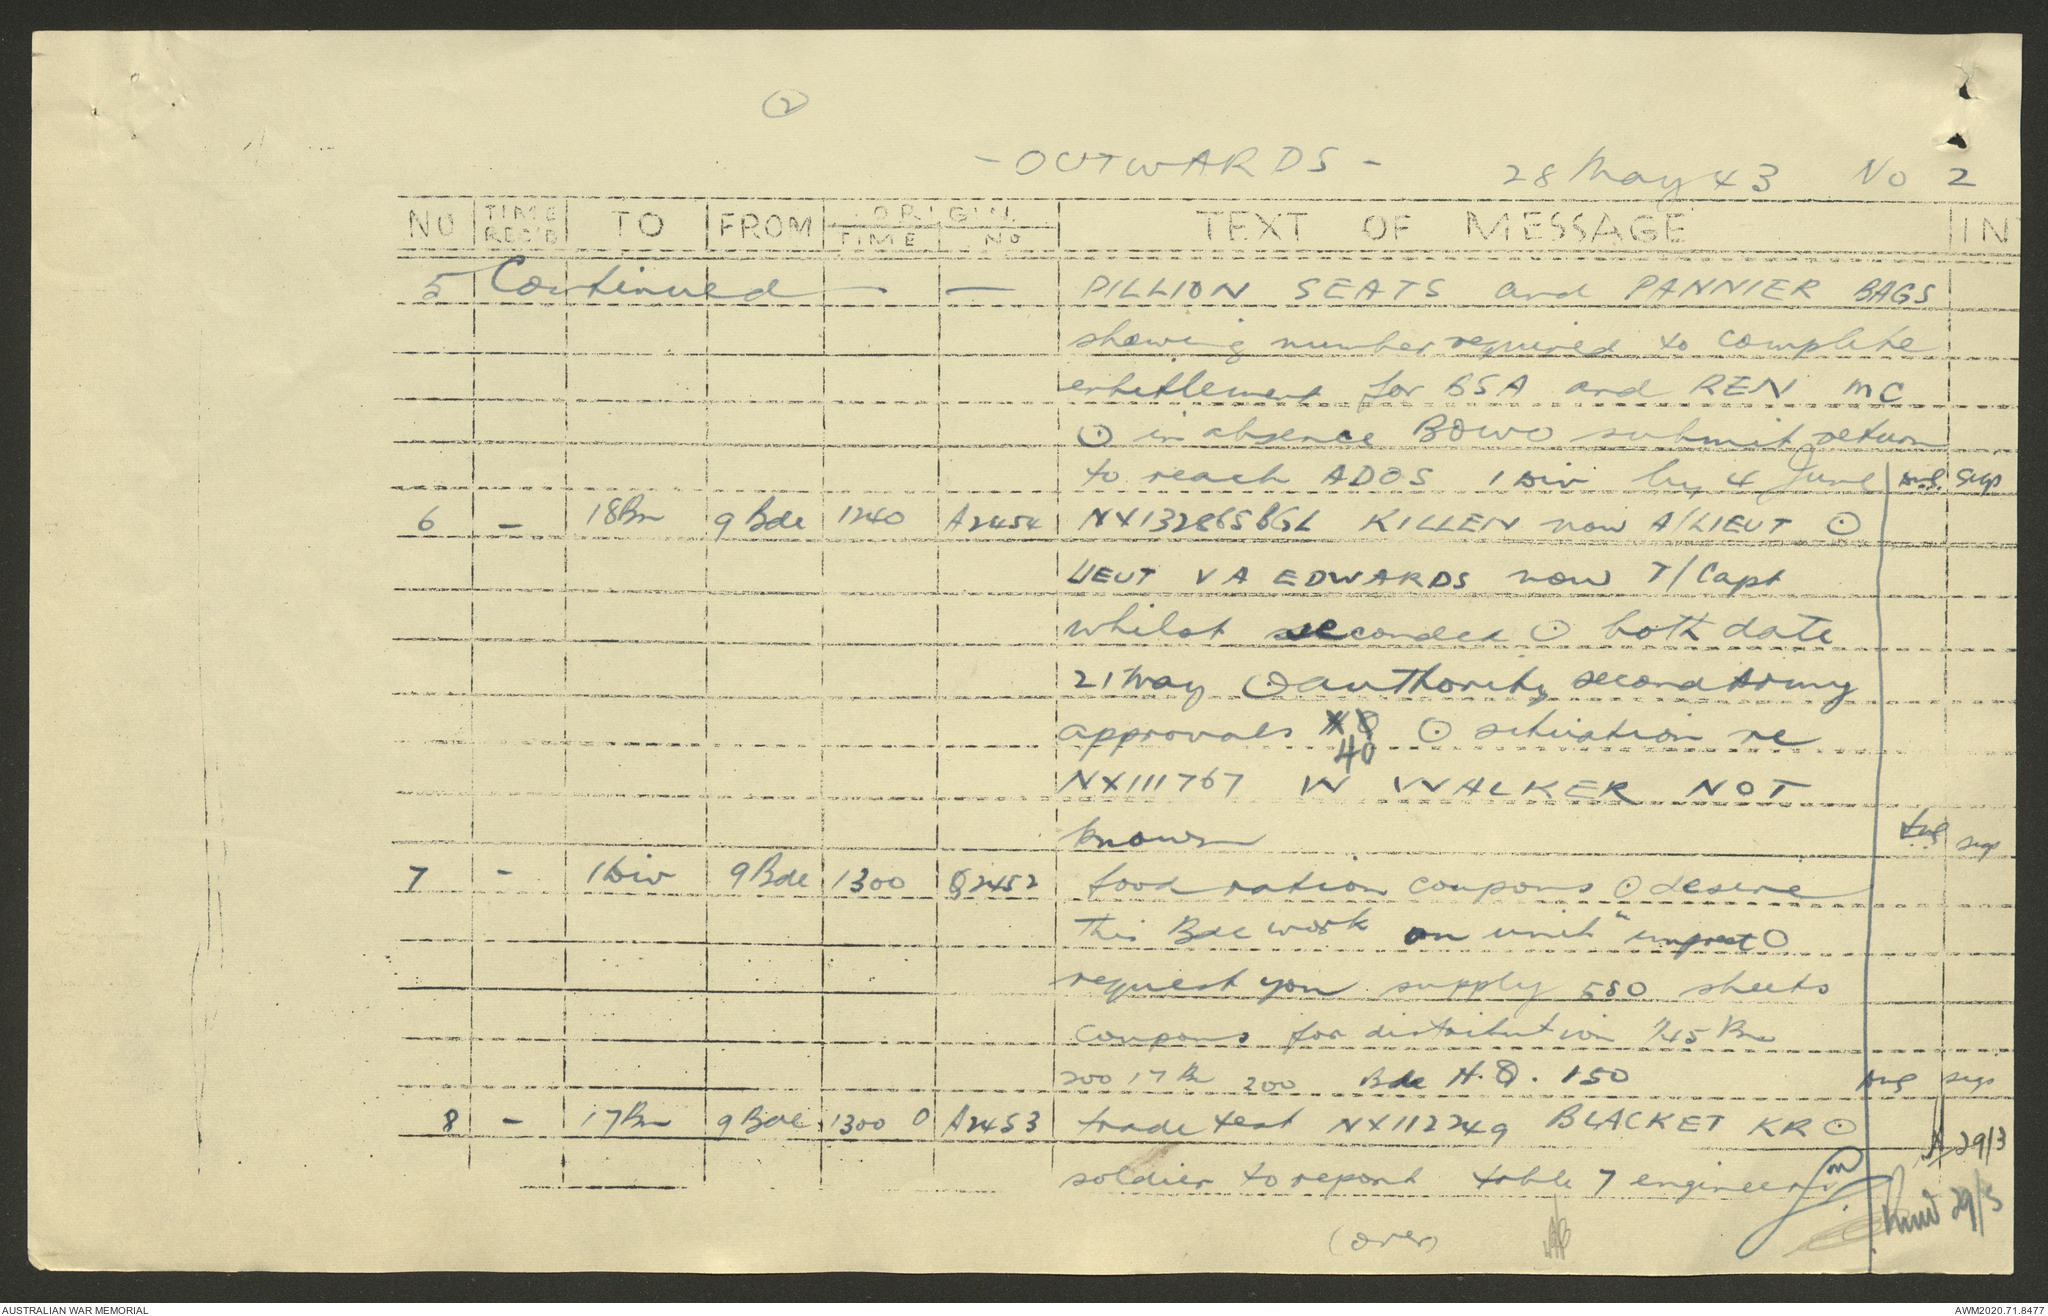 2
- OUTWARDS -
28 May 43 No 2
NO TIME REC'D TO FROM ORIGIN TIME NO TEXT OF MESSAGE IN
5 Continued — — PILLION SEATS and PANNIER BAGS
showing number required to complete
entitlement for BSA and REN MC
⊙ in absence BOWO submit return
to reach ADOS 1 Div by 4 June sigs
6 - 18Bn 9 Bde 1240 A2454 NX132865 BGL KILLEN now A/LIEUT ⊙
LIEUT V A EDWARDS now T/Capt
whilst seconded ⊙ both date
21 May ⊙ authority second Army
approvals 40 ⊙ situation re
NX111767 W WALKER NOT
known sigs
7 - 1 Div 9 Bde 1300 Q2452 food ration coupons ⊙ desire
this Bde work on unit "imprest ⊙
request you supply 550 sheets
coupons for distribution 45 Bn
200 17 Bn 200 Bde H.Q. 150 sigs
8 - 17 Bn 9 Bde 1300 A2453 trade test NX112249 BLACKET KR ⊙
soldier to report table 7 engineers
29/3
29/5
(over)
AUSTRALIAN WAR MEMORIAL
AWM2020.71.8477